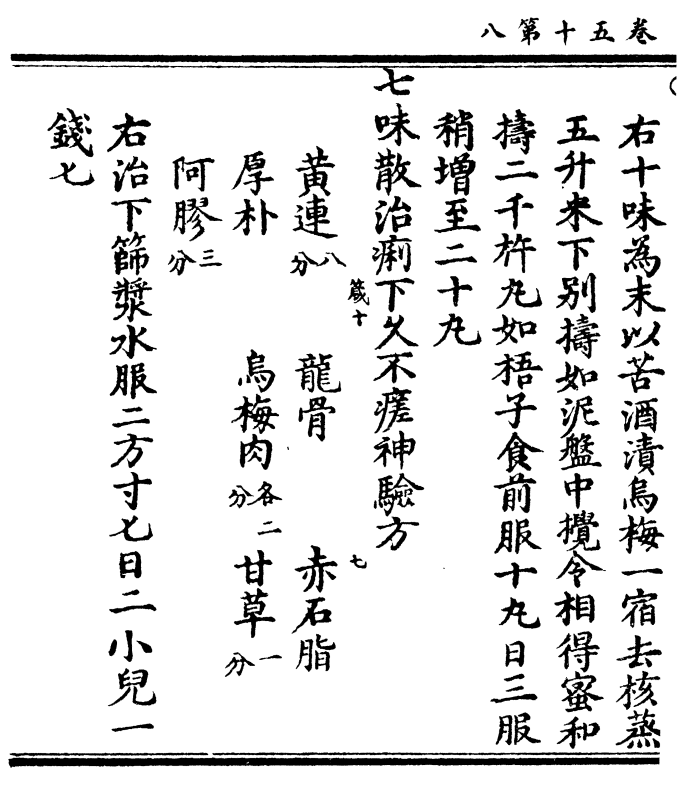 卷五十第八
右十味為末以苦酒漬烏梅一宿去核蒸
五升米下別擣如泥盤中攪令相得蜜和
擣二千杵丸如梧子食前服十丸日三服
稍增至二十丸
七味散治痢下久不瘥神驗方
箴十
七
黃連八分 龍骨 赤石脂
厚朴 烏梅肉各二分 甘草一分
阿膠三分
右治下篩漿水服二方寸匕日二小兒一
錢匕